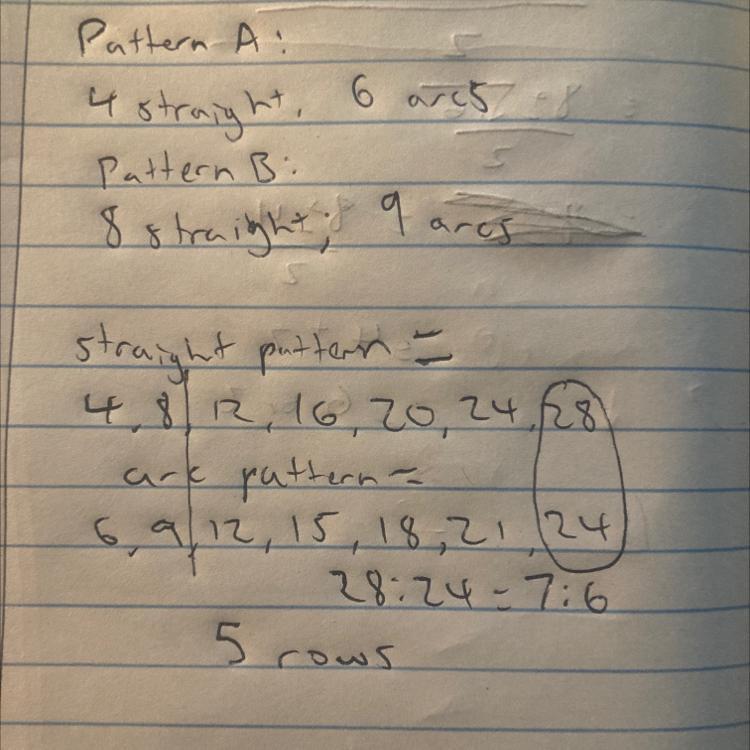 Pattern A:
4 straight, 6 arcs
Pattern B:
8 straight; 9 arcs
straight pattern =
4, 8, 12, 16, 20, 24, 28
arc pattern =
6, 9, 12, 15, 18, 21, 24
28:24 = 7:6
5 rows